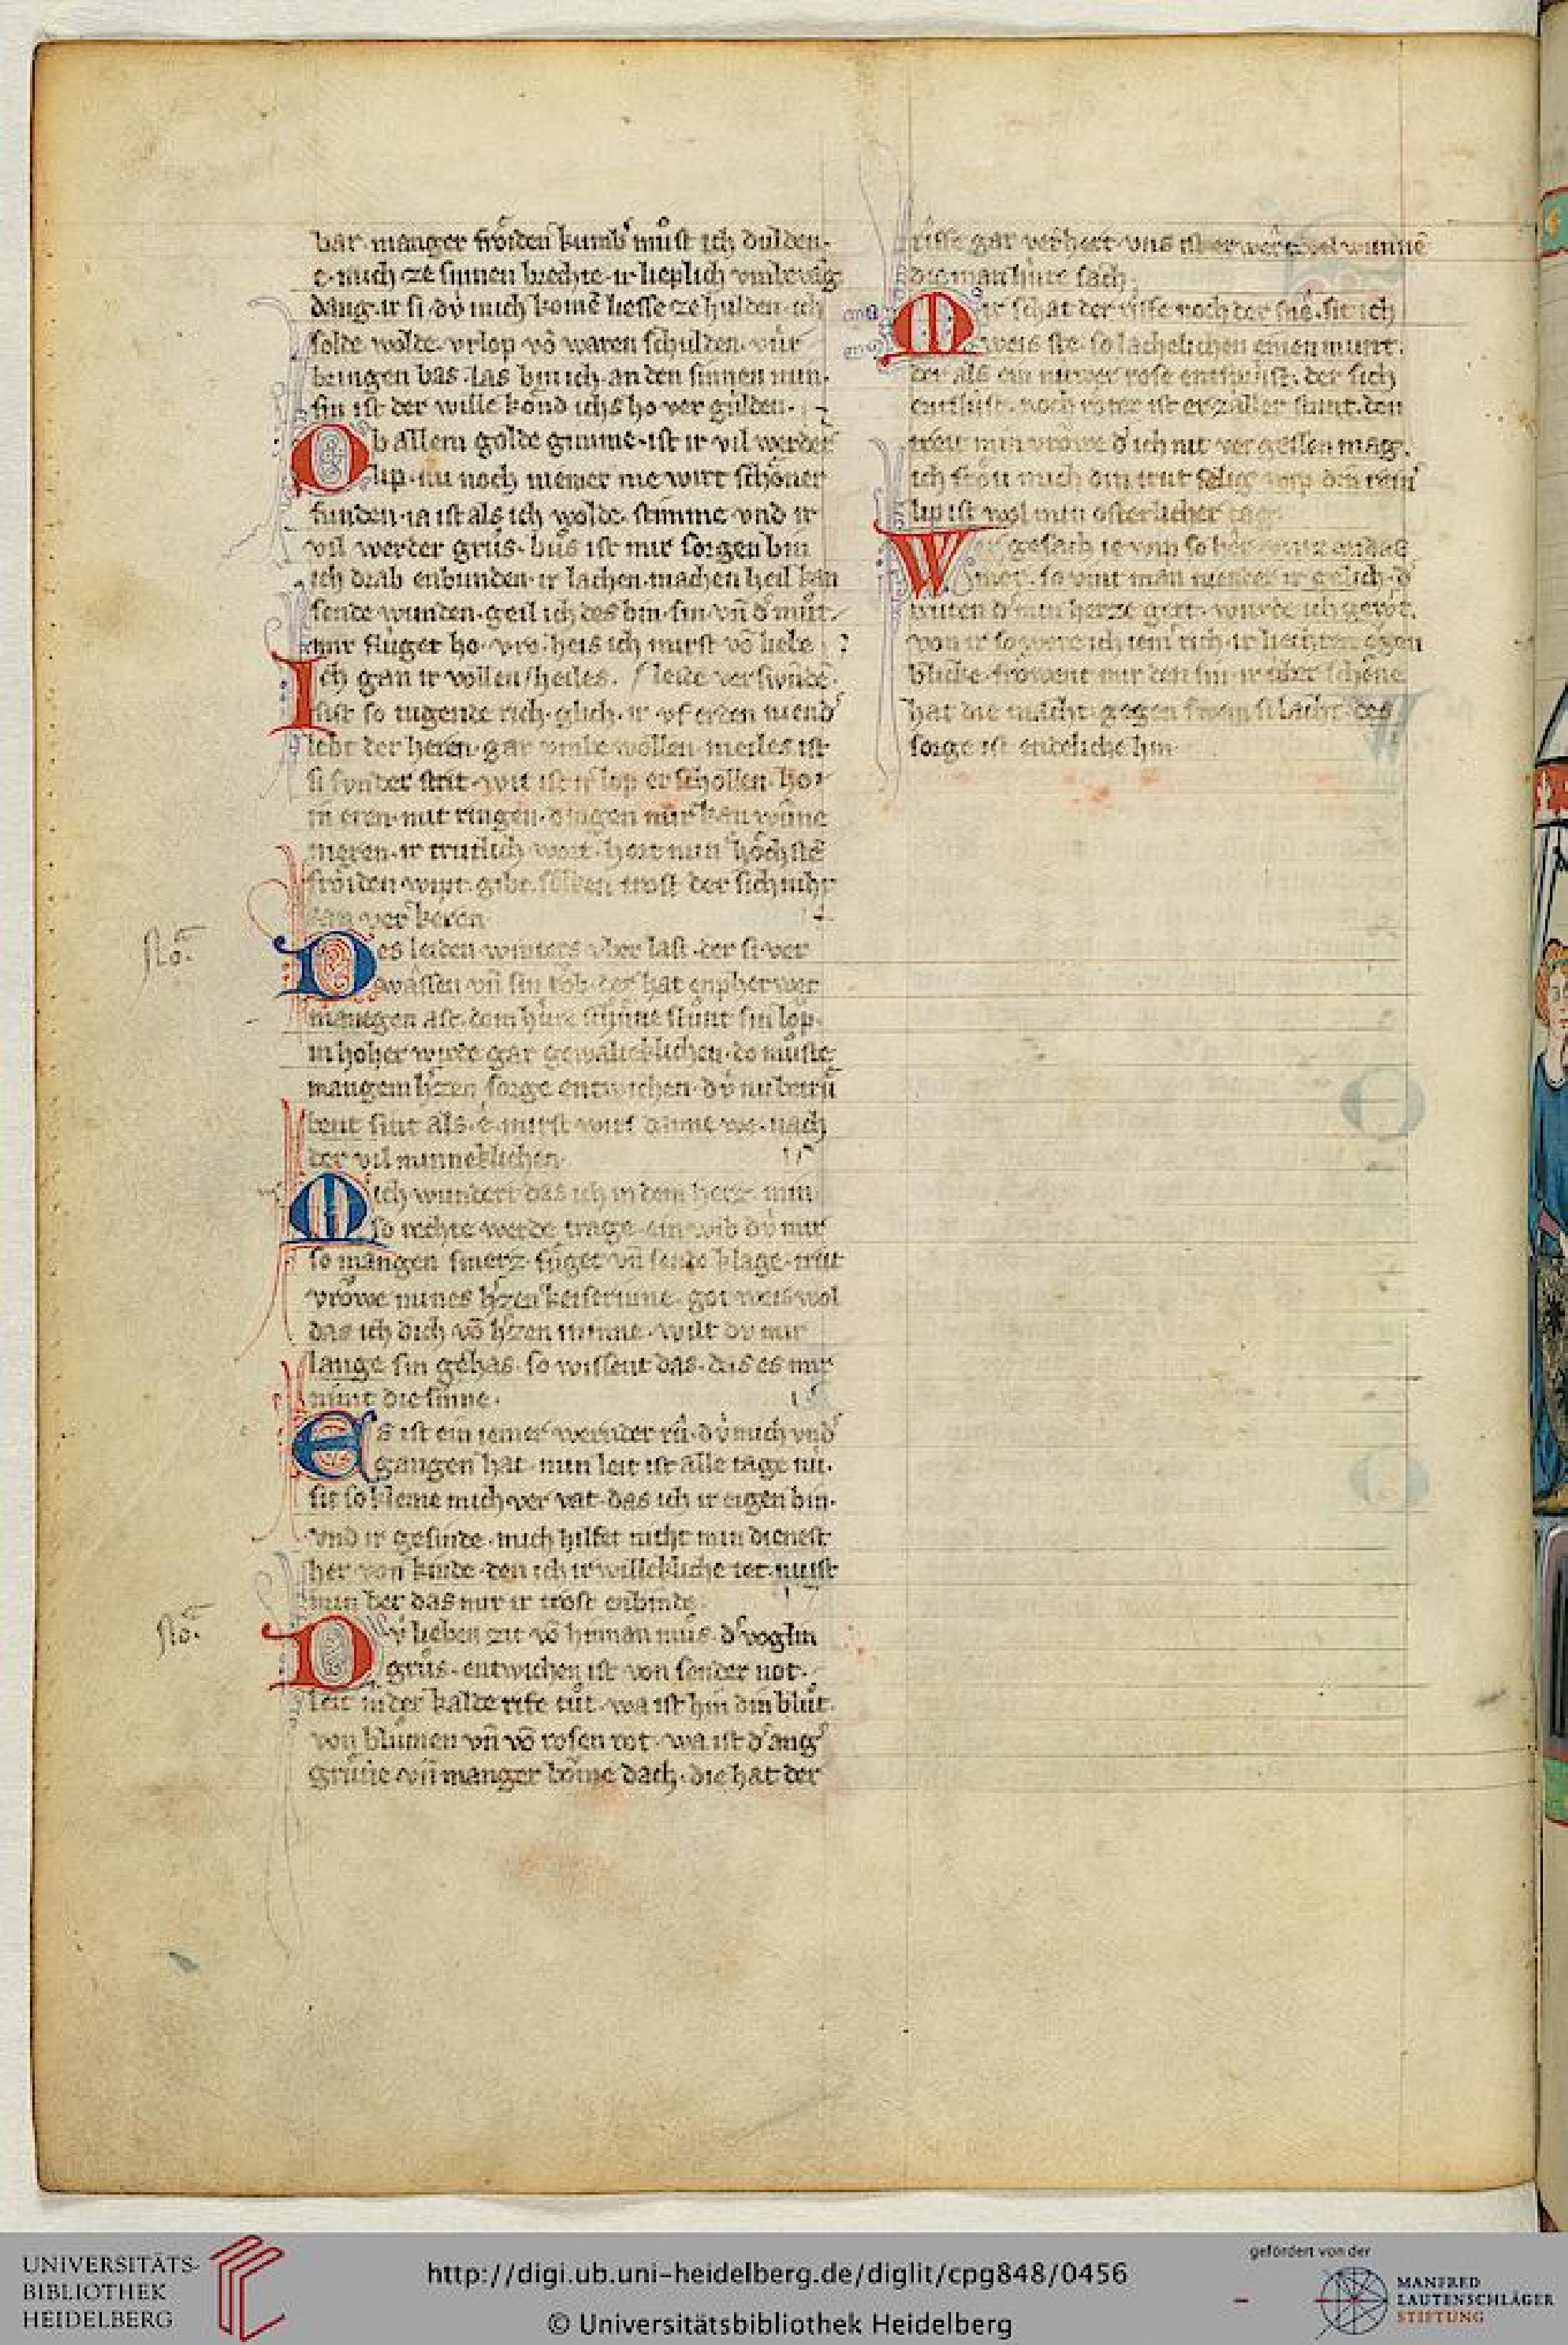 bar manger froͤiden kumb' muͤst ich dulden.
e mich ze sinnen brechte ir lieplich vmbevāg.
solde wolde vrlop vō waren schulden vúr
bringen bas. las bin ich an den sinnen min.
sin ist der wille kond ichs ho ver gulden.
Ob allem golde gimme ist ir vil werder
lip nu noch niemer nie wirt schoͤner
funden ia ist als ich wolde stimme vnd ir
vil werder gruͤs. buͤs ist mir sorgen bin
ich drab enbunden ir lachen machen heil kan
sende wunden. geil ich des bin sin vn̄ d' muͤt.
mir fluget ho vro heis ich mirst vō liebe
Ich gan ir vollen heiles. leide verswūdē.
sist so tugende rich glich ir vf erden niend'
lebt der heren gar vmbe wollen meiles ist
si sunder strit wit ist ir lop erschollen ho
in eren mit ringen dingen mir kan wūne
meren ir trutlich wort hort min hoͤchstē
froͤiden wipt gibt selden trost der sich niht
kan verkeren
No.
Des leiden winters vber last der si ver
wassen vn̄ sin rob der hat enpherwet
manegen ast. dem húre schone stuͤnt sin loͮp.
in hoher wirde gar gewaltecklichen do muͤste
mangem h'zen sorge entwichen dú nu betruͤ
bent sint als e mirst wirs danne we nach
der vil minneklichen
Mich wundert das ich in dem herzē min
so rechte werde trage ein wib dú mir
so mangen smerz fuͤget vn̄ sende klage trut
vroͮwe mines h'zen keiserinne. got weis wol
das ich dich vō h'zen minne. wilt du mir
lange sin gehas. so wissent das. das es mir
nimt die sinne.
Es ist ein iemer wernder rú. dú mich vnd'
gangen hat. min leit ist alle tage nú.
sit so kleine mich ver vat das ich ir eigen bin.
vnd ir gesinde. mich hilfet nicht min dienest
her von kinde. den ich ir willekliche tet. muͤst
min ber das mir ir trost enbinde
No.
Dú lieben zit vō hinnan muͤs. d' voglin
gruͤs. entwichen ist von sender not.
leit in der kalde rife tuͤt. wa ist hin din bluͤt.
von bluͤmen vn̄ vō rosen rot. wa ist d' ang'
gruͤne vn̄ manger boͮme dach. die hat der
riffe gar verhert
die man húre sach.
Mir schat der riffe noch der sne. sit ich
weis ste. so lachelichen einen munt.
der als ein niuwer rose
entslust. noch roter ist er zaller stunt. den
treit min vroͮwe d' ich nit vergessen mag.
ich froͤu mich din trut selig wip din rein'
lip ist wol min osterlicher tag.
Wer gesach ie wip so
so vint man niender ir gelich. d'
guͤten d' min herze gert. wurde ich gewert.
von ir so were ich iem' rich. ir liechten oͮgen
blicke froͤwent mir den sin. ir úber schone
hat die macht.
sorge ist endeliche hin.
UNIVERSITÄTS-
BIBLIOTHEK
HEIDELBERG
http://digi.ub.uni-heidelberg.de/diglit/cpg848/0456
© Universitätsbibliothek Heidelberg
gefördert von der
MANFRED
LAUTENSCHLÄGER
STIFTUNG